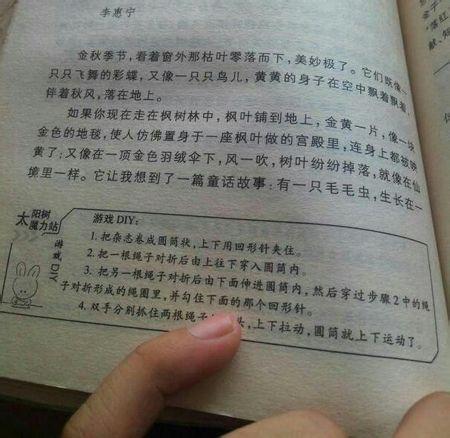 李惠宁
金秋季节，看着窗外那枯叶零落而下，美妙极了。它们既像一
只只飞舞的彩蝶，又像一只只鸟儿，黄黄的身子在空中飘着飘着，
伴着秋风，落在地上。
如果你现在走在枫树林中，枫叶铺到地上，金黄一片，像一块
金色的地毯，使人仿佛置身于一座枫叶做的宫殿里，连身上都被映
黄了；又像在一顶金色羽绒伞下，风一吹，树叶纷纷掉落，就像在仙
境里一样。它让我想到了一篇童话故事：有一只毛毛虫，生长在一
太阳树
魔力站
游戏DIY
游戏DIY：
1.把杂志卷成圆筒状，上下用回形针夹住。
2.把一根绳子对折后由上往下穿入圆筒内。
3.把另一根绳子对折后由下面伸进圆筒内，然后穿过步骤2中的绳
子对折形成的绳圈里，并勾住下面的那个回形针。
4.双手分别抓住两根绳子 头，上下拉动，圆筒就上下运动了。